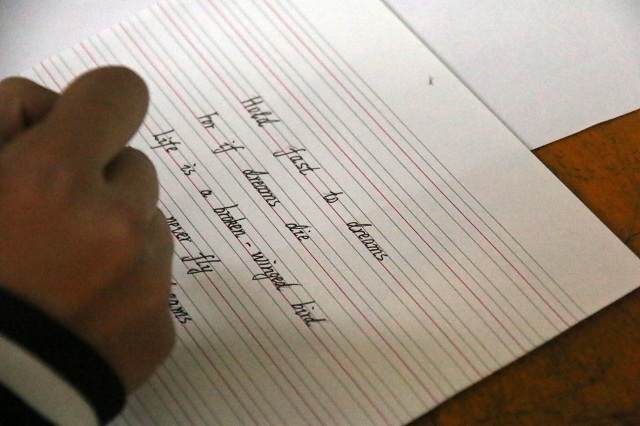 Hold fast to dreams
For if dreams die
Life is a broken-winged bird
never fly